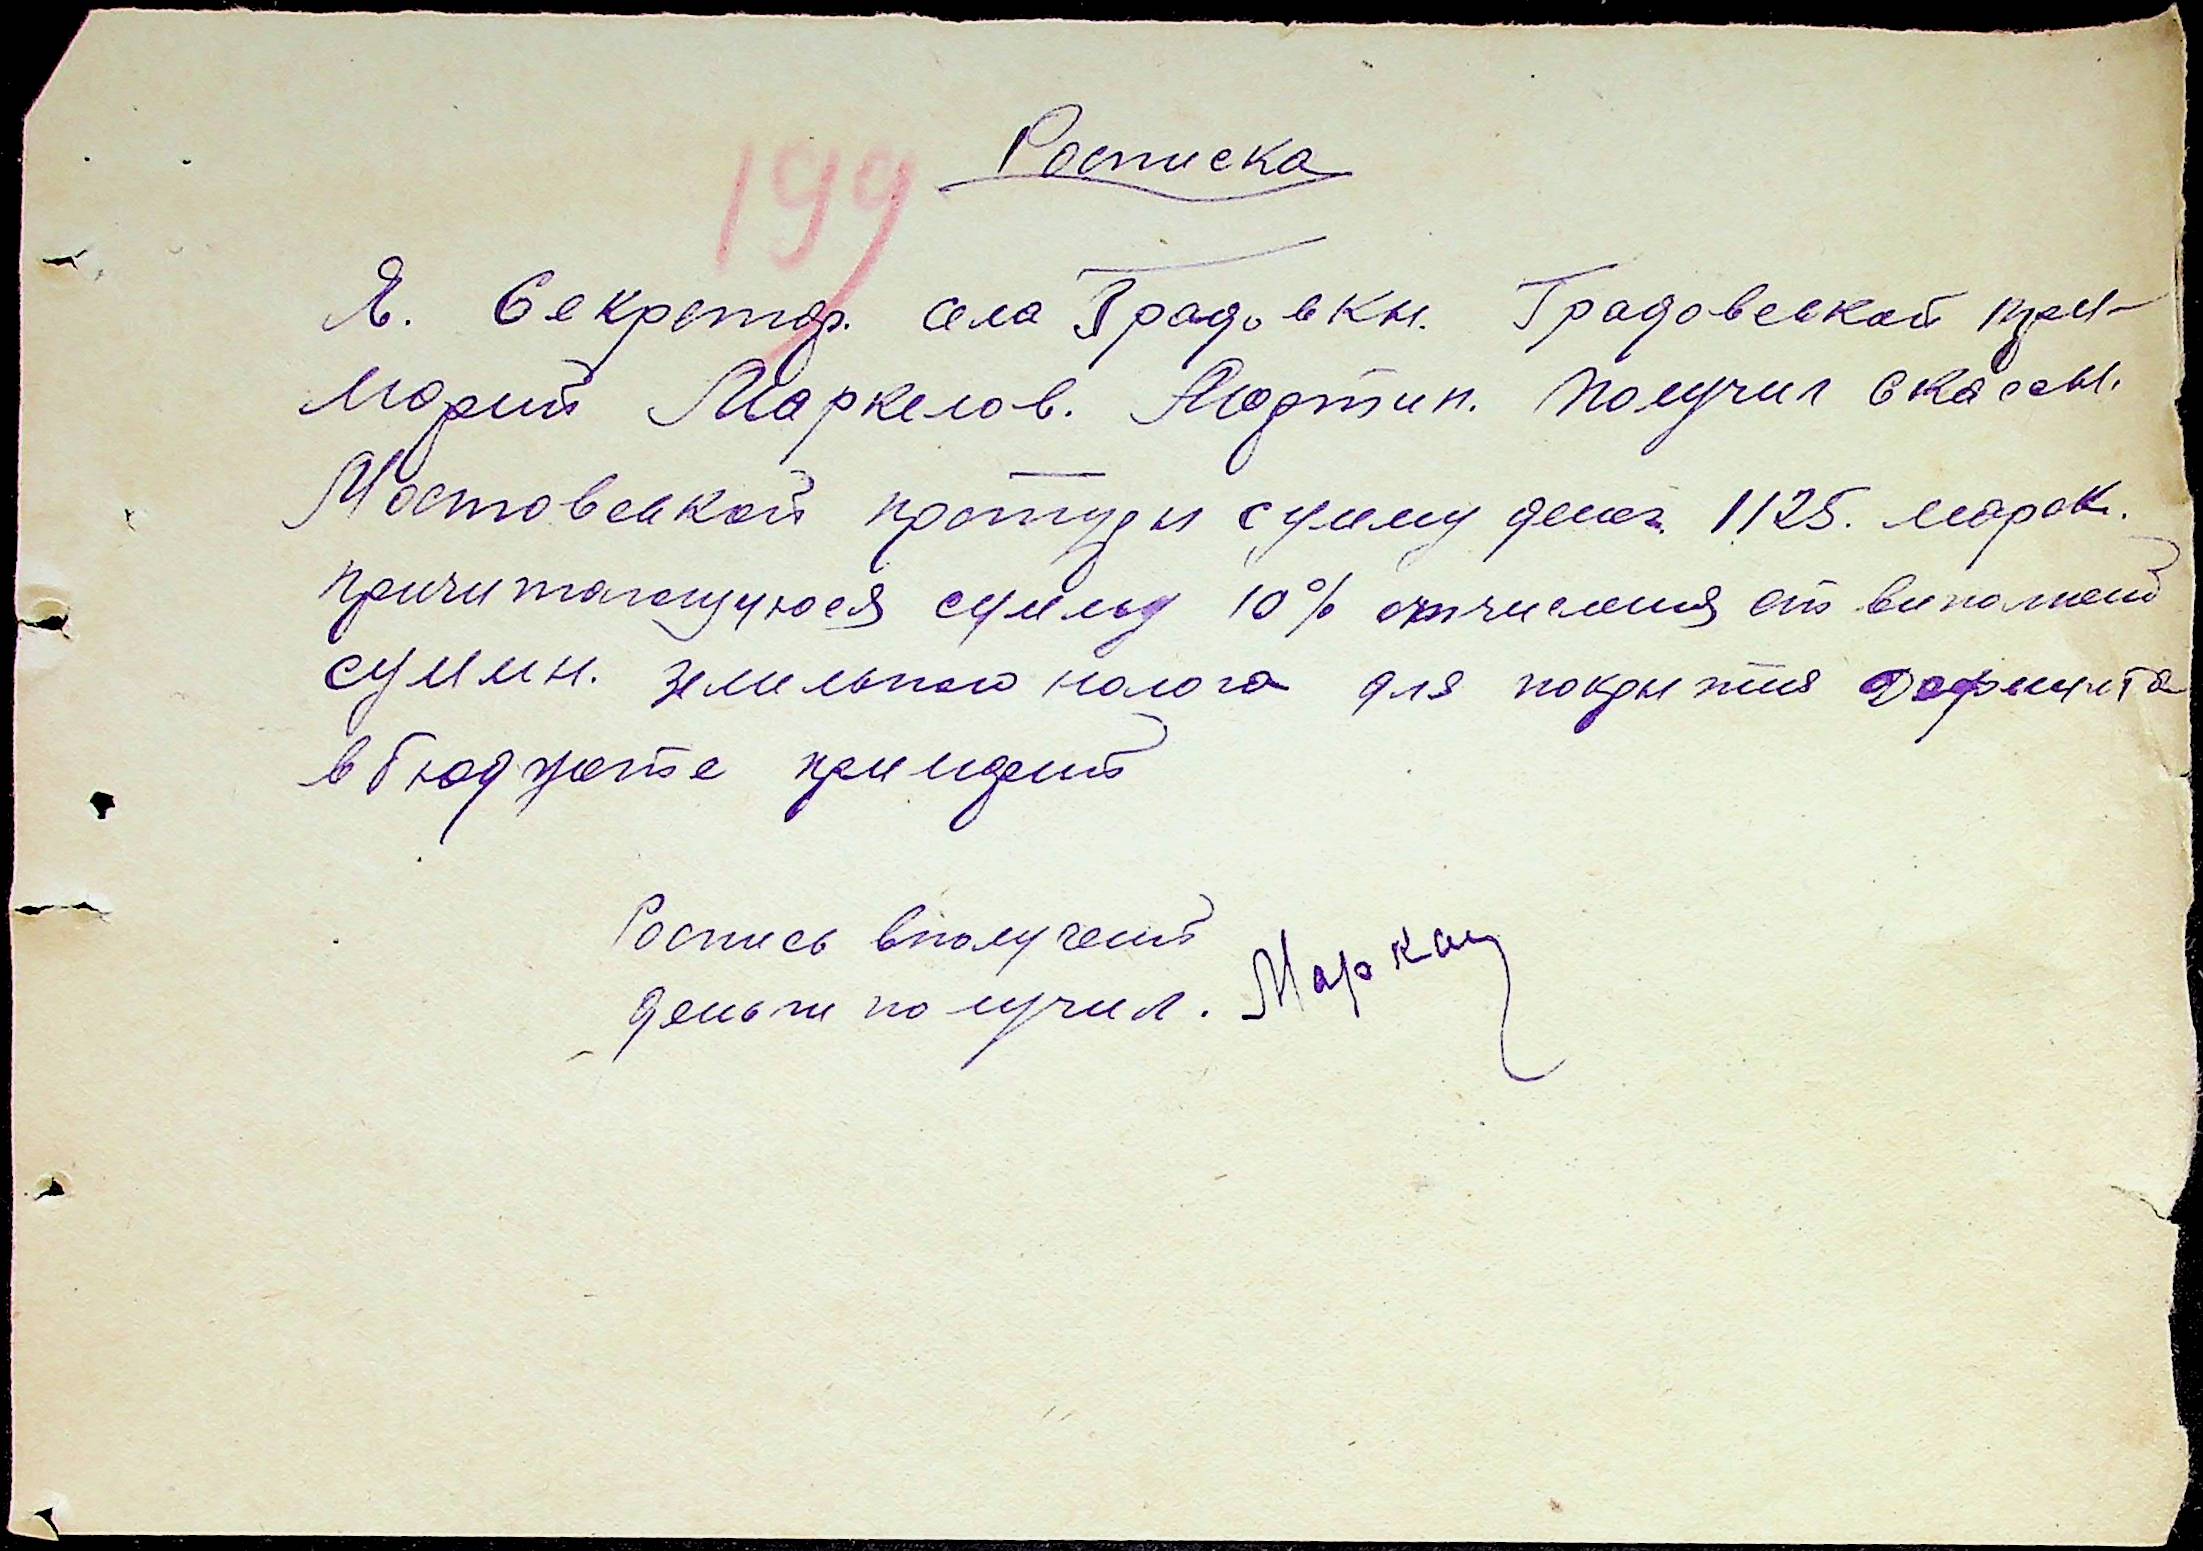 Росписка
199
Я. Секретар. села Градовки. Градовской при-
марий Маркелов. Мартин. Получил скассы.
Мостовской претуры сумму денег 1125. марок.
причитающуюся сумму 10% отчисления от
суммы. земельного налога для покрытия Дефицита
в бюджете примарий
Роспись вполучений
деньги получил.